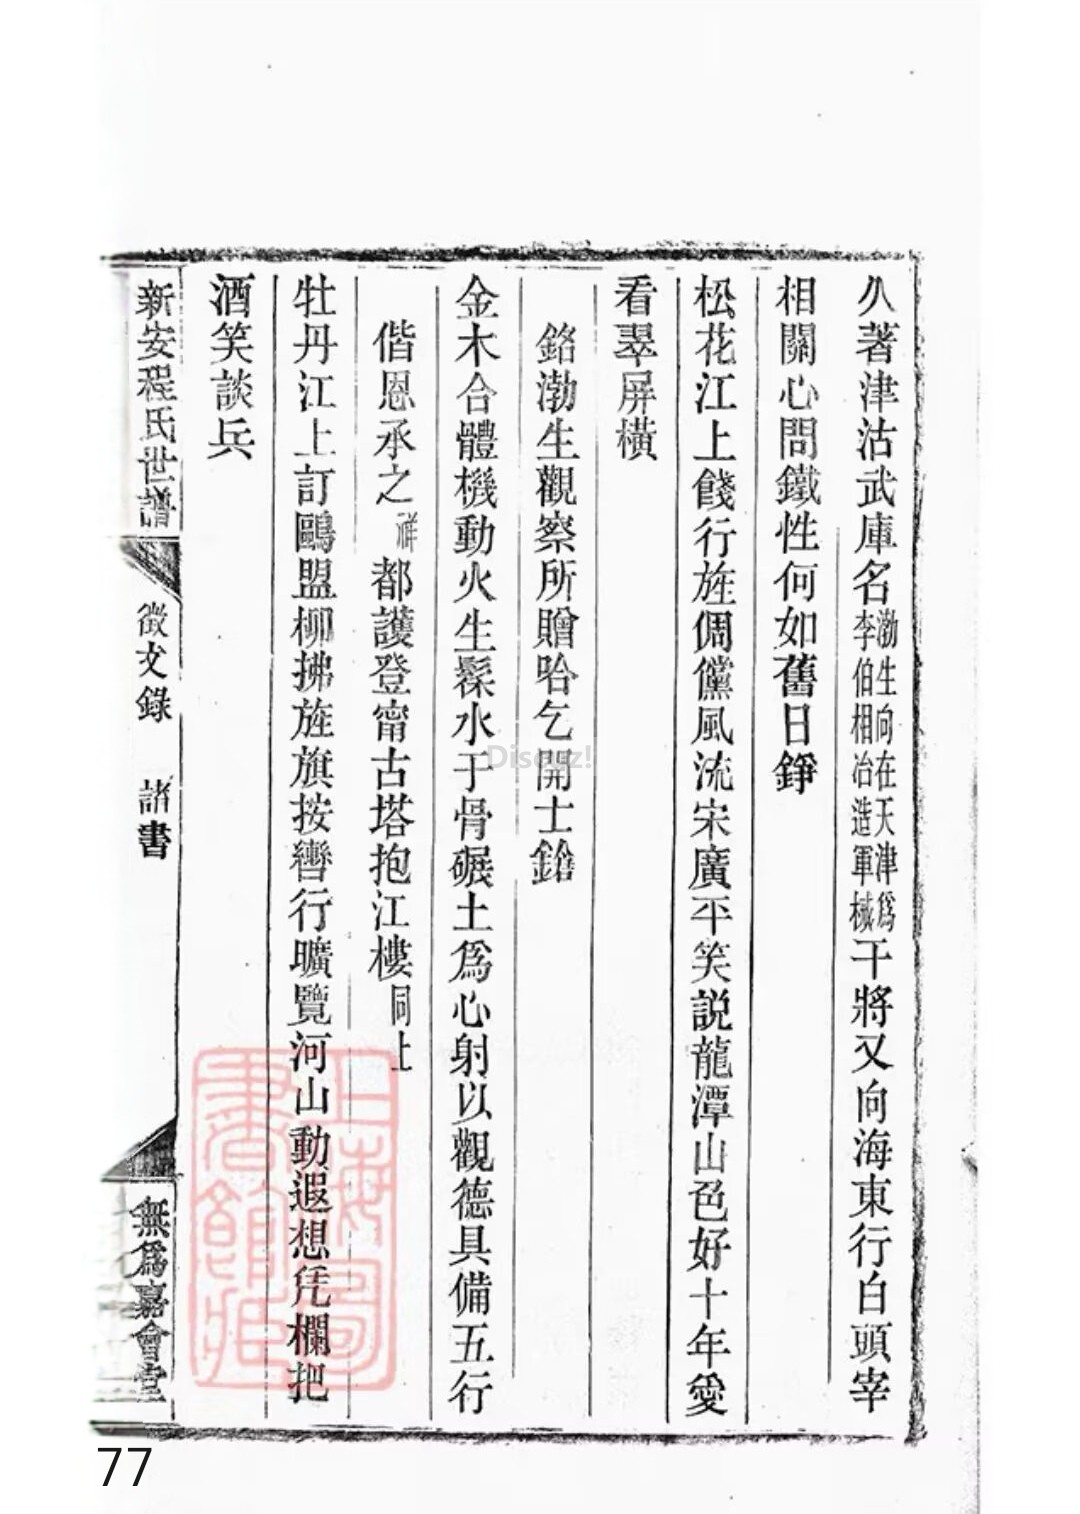 久著津沽武庫名渤生向在天津爲李伯相冶造軍械干將又向海東行白頭宰
相關心問鐵性何如舊日錚
松花江上餞行旌倜儻風流宋廣平笑説龍潭山色好十年愛
看翠屏橫
銘渤生觀察所贈哈乞開士鎗
金木合體機動火生髹水于骨碾土爲心射以觀德具備五行
偕恩承之祥都護登甯古塔抱江樓同上
牡丹江上訂鷗盟柳拂旌旗按轡行曠覽河山動遐想凭欄把
酒笑談兵
新安程氏世譜
徵文錄 諸書
無爲嘉會堂
上海圖書館藏
Discuz!
77